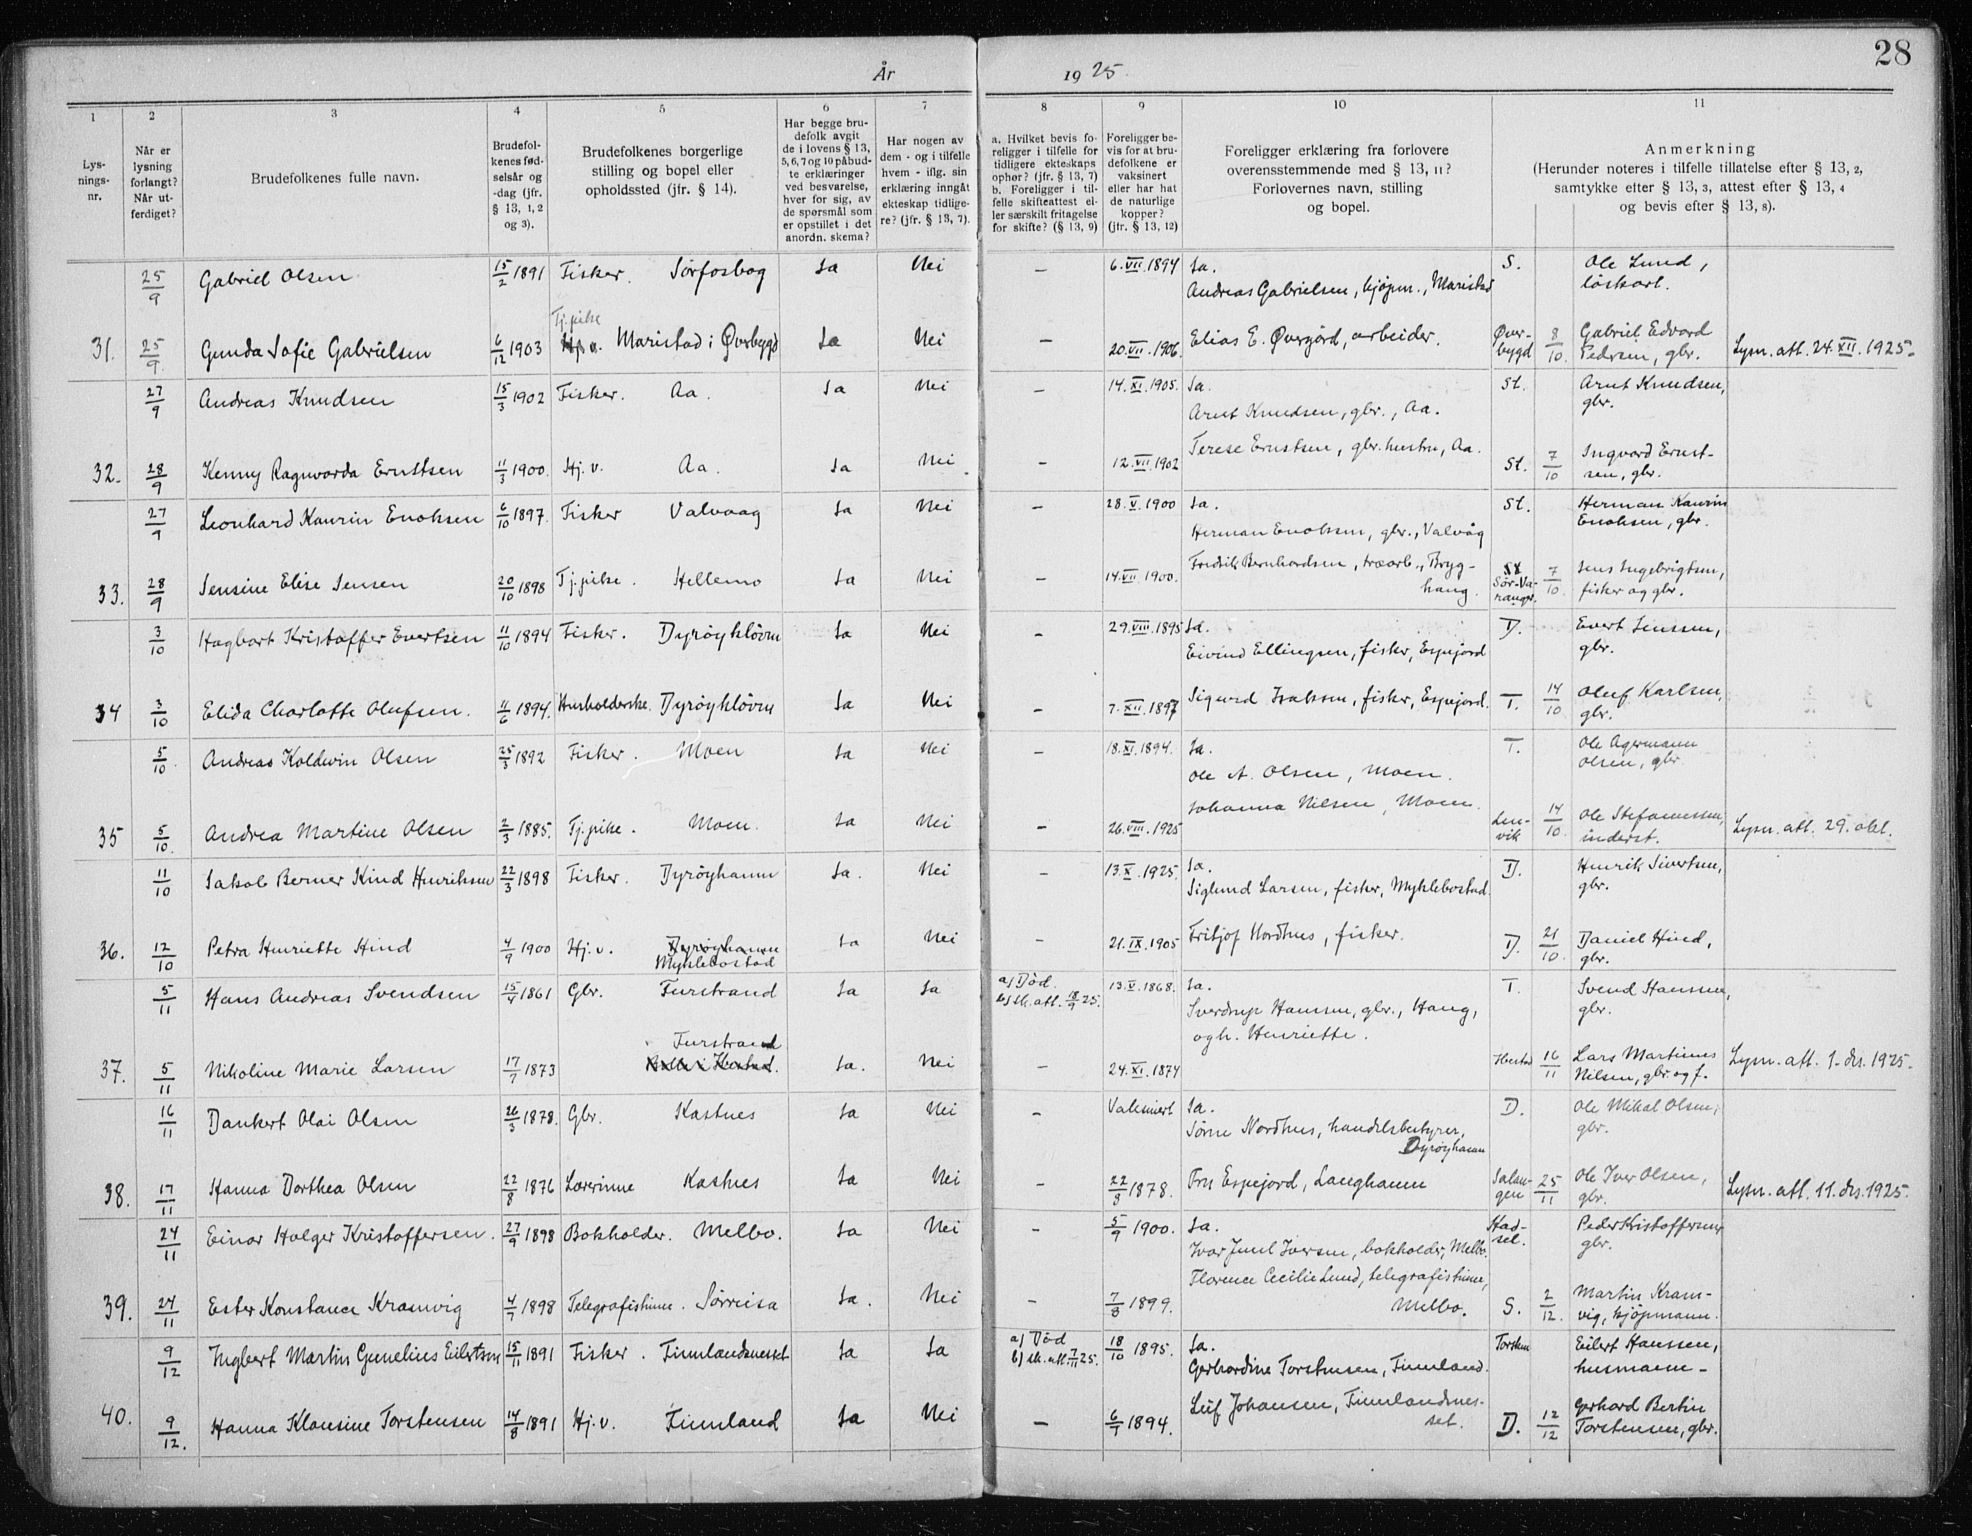 28
År 1925.
1 2 3 4 5 6 7 8 9 10 11
Lysningsnr.
Når er lysning forlangt? Når utferdiget?
Brudefolkenes fulle navn.
Brudefolkenes fødselsår og -dag (jfr. § 13, 1, 2 og 3).
Brudefolkenes borgerlige stilling og bopel eller opholdssted (jfr. § 14).
Har begge brudefolk avgit de i lovens § 13, 5, 6, 7 og 10 påbudte erklæringer ved besvarelse, hver for sig, av de spørsmål som er opstillet i det anordn. skema?
Har nogen av dem - og i tilfelle hvem - iflg. sin erklæring inngått ekteskap tidligere? (jfr. § 13, 7).
a. Hvilket bevis foreligger i tilfelle for tidligere ekteskaps ophør? (jfr. § 13, 7) b. Foreligger i tilfelle skifteattest eller særskilt fritagelse for skifte? (§ 13, 9)
Foreligger bevis for at brudefolkene er vaksinert eller har hat de naturlige kopper? (jfr. § 13, 12)
Foreligger erklæring fra forlovere overensstemmende med § 13, 11? Forlovernes navn, stilling og bopel.
Anmerkning (Herunder noteres i tilfelle tillatelse efter § 13, 2, samtykke efter § 13, 3, attest efter § 13, 4 og bevis efter § 13, 8).
25/9 Gabriel Olsen 15/2 1891 Fisker. Sørfosbog Ja Nei — 6.VII.1894 Ja. Andreas Gabrielsen, kjøpm., Maristad S. Ole Lund, løskarl.
31. 25/9 Gunda Sofie Gabrielsen 6/12 1903 Tj.pike Maristad i Øverbygd Ja Nei — 20.VII.1906. Elias E. Øvergård, arbeider. Øverbygd 8/10. Gabriel Edvard Pedersen, gbr. Lysn. att. 24.XII.1925.
27/9 Andreas Knudsen 15/3 1902 Fisker. Aa. Ja Nei — 14.XI.1905. Ja. Arnt Knudsen, gbr., Aa. St. Arnt Knudsen, gbr.
32. 28/9 Kenny Ragnvarda Ernstsen 11/3 1900. Hj.v. Aa. Ja Nei — 12.VII.1902 Terese Ernstsen, gbr.hustru, Aa. St. 7/10 Ingvard Ernstsen, gbr.
27/9 Leonhard Kaurin Enoksen 6/10 1897. Fisker Valvaag Ja Nei — 28.V.1900 Ja. Herman Enoksen, gbr., Valvåg St. Herman Kaurin Enoksen, gbr.
33. 28/9 Jensine Elise Jensen 20/10 1898 Tj.pike. Hellemo Ja Nei — 14.VII.1900. Fredrik Bernhardsen, træarb., Bryghaug. Sør-Varanger. 7/10. Jens Ingebrigtsen, fisker og gbr.
3/10 Hagbart Kristoffer Evertsen 11/10 1894 Fisker. Dyrøykløven Ja Nei — 29.VIII.1895 Ja. Eivind Ellingsen, fisker, Espejord D. Evert Jenssen, gbr.
34 3/10 Elida Charlotte Olufsen. 11/6 1894. Husholderske. Dyrøykløven Ja Nei — 7.XII.1897 Sigurd Isaksen, fisker, Espejord. T. 14/10. Oluf Karlsen, gbr.
5/10. Andreas Koldevin Olsen 25/3 1892 Fisker. Moen Ja Nei — 18.XI.1894. Ja. Ole A. Olsen, Moen. T. Ole Agermann Olsen, gbr.
35 5/10. Andrea Martine Olsen 2/3 1885. Tj.pike. Moen. Ja Nei — 26.VIII.1925 Johanna Nilsen, Moen. Lenvik 14/10. Ole Stefanussen, inderst. Lysn. att. 29. okt.
11/10 Jakob Berner Kind Henriksen 22/3 1898 Fisker. Dyrøyhamn Ja. Nei — 13.X.1925. Ja. Siglund Larsen, fisker, Myklebostad. D. Henrik Sivertsen, gbr.
36. 12/10 Petra Henriette Hind 4/9 1900 Hj.v. Dyrøyhamn Myklebostad Ja Nei — 21.IX.1905 Fritjof Nordhus, fisker. D. 21/10. Daniel Hind, gbr.
5/11 Hans Andreas Svendsen 15/4 1861 Gbr. Furstrand Ja Ja a) Død. b) sk. att. 18/9 25. 13.V.1868. Ja. Sverdrup Hanssen, gbr., Haug, og h. Henriette. T. Svend Hanssen, gbr.
37. 5/11 Nikoline Marie Larsen 17/7 1873 Furstrand Ja. Nei — 24.XI.1874 16/11 Lars Martinus Nilsen, gbr. og f. Lysn. att. 1. des. 1925.
16/11 Dankert Olai Olsen 26/3 1878. Gbr. Kastnes Ja Nei — Vaksinert Ja. Sørine Nordhus, handelsbestyrer, Dyrøyhamn D. Ole Mikal Olsen, gbr.
38. 17/11 Hanna Dorthea Olsen 22/8 1876 Lærerinne Kastnes Ja Nei — 22/8 1878. Fru Espejord, Langhamn Salangen 25/11 Ole Iver Olsen, gbr. Lysn. att. 11. des. 1925.
24/11 Einar Holger Kristoffersen. 27/9 1898 Bokholder. Melbo. Ja Nei — 5/9 1900. Ja. Ivar Juul Iversen, bokholder, Melbo. Hadsel. Peder Kristoffersen, gbr.
39. 24/11 Ester Konstance Kramvig 4/7 1898 Telegrafistinne. Sørreisa Ja. Nei — 7/8 1899. Florence Cecilie Lund, telegrafistinne, Melbo. S. 2/12. Martin Kramvig, kjøpmann.
9/12 Ingbert Martin Gunelius Eilertsen 15/11 1891 Fisker. Finnlandsneset Ja Ja a) Død b) sk. att. 7/11 25. 18/10 1895. Ja. Gerhardine Torstensen, Finnland. Torsken Eilert Hanssen, husmann —
40. 9/12. Hanna Klausine Torstensen 14/8 1891 Hj.v. Finnland Ja Nei — 6/7 1894. Leif Johansen, Finnlandsneset. D. 12/12 Gerhard Bertin Torstensen, gbr.